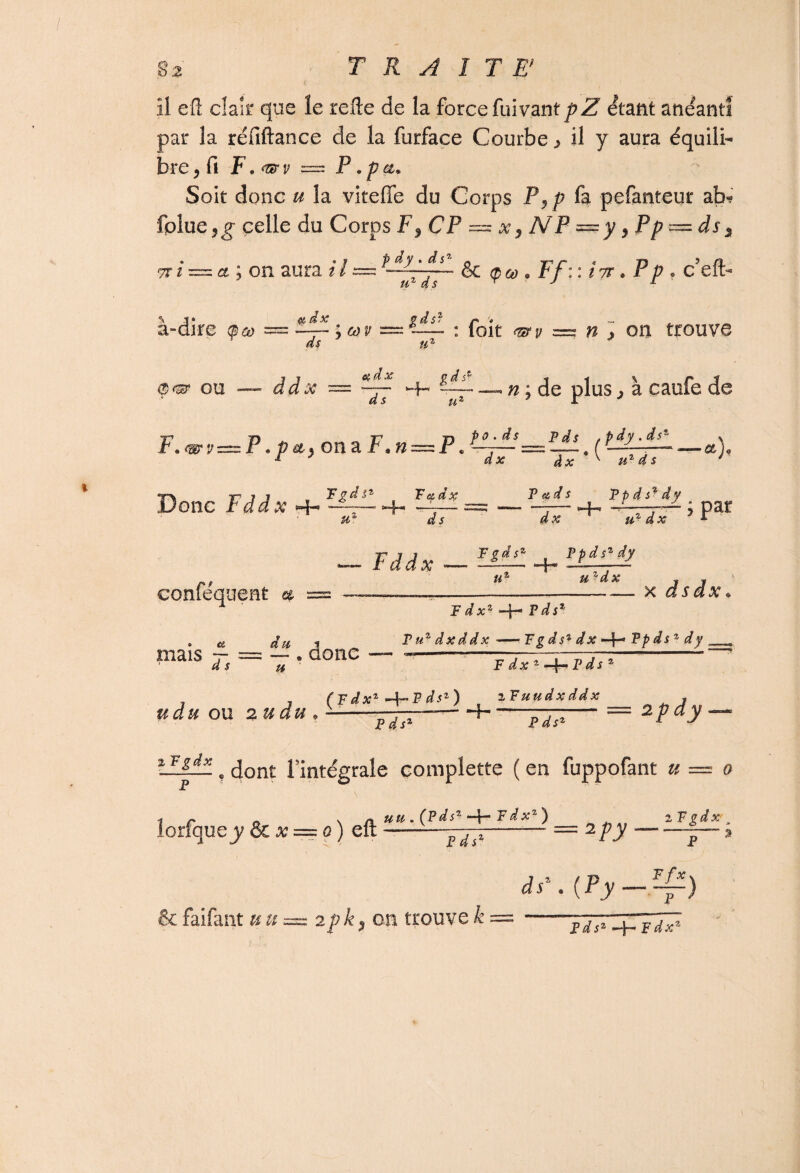 82 TRAITE'
il eſt clair que le reſte de la force ſuivant pZ étant anéanti
par la réſiſtance de la ſurface Courbe, il y aura équili-
bre, ſi F. ϖν = P. pα.
Soit donc u la viteſſe du Corps P, p ſa peſanteur ab-
ſolue, g celle du Corps F, CP = x, NP = y, Pp = ds,
πi = α ; on aura il = (pdy . ds²)/(u² ds) & φω . Ff :: iπ . Pp , c'eſt-
à-dire φω = αdx/ds ; ων = gds²/u² : ſoit ϖν = n , on trouve
φϖ ou — ddx = αdx/ds + gds²/u² — n ; de plus, à cauſe de
F. ϖν = P. pα, on a F. n = P. (po . ds)/dx = Pds/dx . ((pdy . ds²)/(u² ds) — α),
Donc Fddx + Fgds²/u² + Fαdx/ds = — Pαds/dx + Ppds²dy/u²dx ; par
conſéquent α = (— Fddx — Fgds²/u² + Ppds²dy/u²dx)/(Fdx² + Pds²) × dsdx.
mais α/ds = du/u , donc — (Fu²dxddx — Fgds²dx + Ppds²dy)/(Fdx² + Pds²) =
udu ou 2udu . (Fdx² + Pds²)/Pds² + 2Fuudxddx/Pds² = 2pdy —
2Fgdx/P , dont l'intégrale complette ( en ſuppoſant u = o
lorſque y & x = o ) eſt uu . (Pds² + Fdx²)/Pds² = 2py — 2Fgdx/P ;
& faiſant uu = 2pk, on trouve k = ds² . (Py — Ffx/P)/(Pds² + Fdx²)